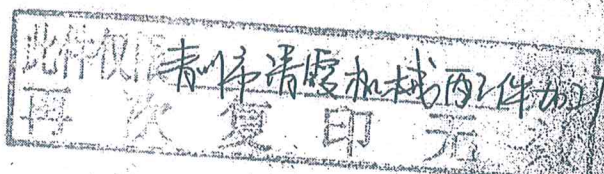 此件仅限青州市清霞机械配件加工
再次复印无